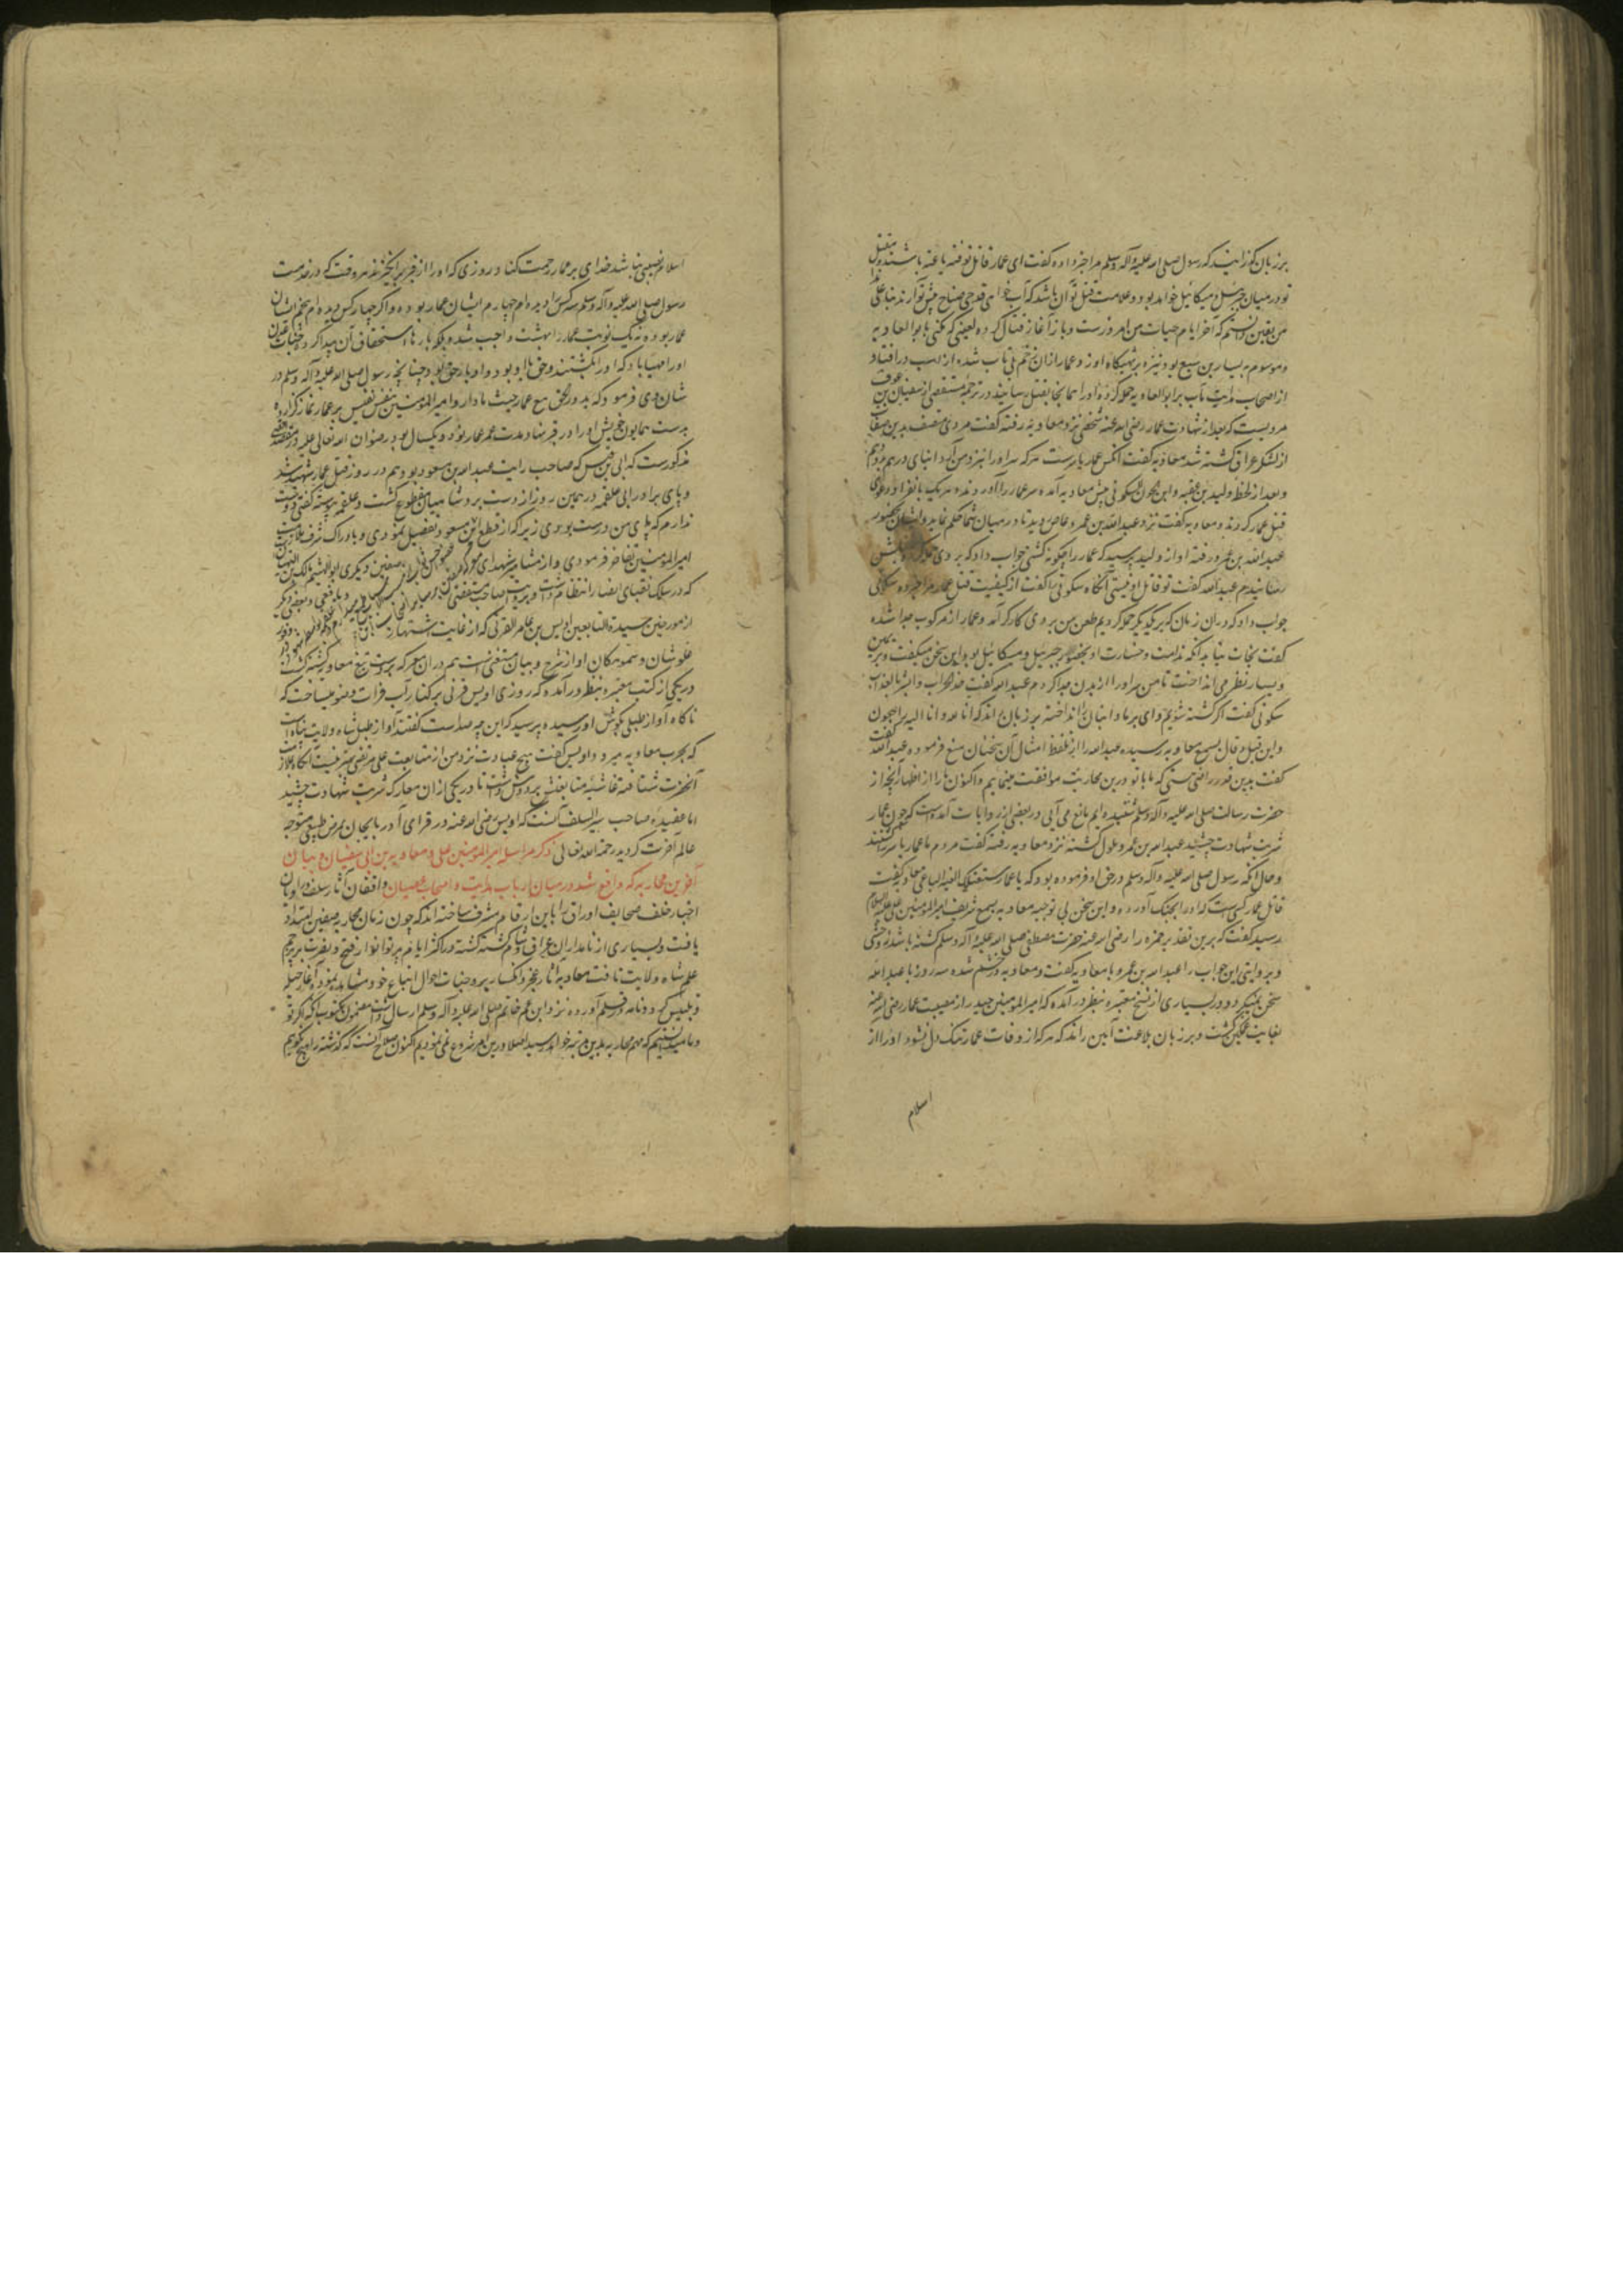 بر زبان گذرانید که رسول صلی الله علیه وآله وسلم مرا خبر داده گفت ای عمار قاتل تو فئه باغیه باشند و قتل
تو در میان جبرئیل و میکائیل خواهد بود و علامت قتل تو آن باشد که آب خواهی قدحی ضیاح پیش تو آرند بنا علی هذا
من یقین دانستم که آخر ایام حیات من امروزست و باز آغاز قتال کرده لعینی که کنی بابو العادیه
و موسوم به یسار بن سبع بود نیزه بر تهیگاه او زد و عمار از آن زخم بی تاب شده از اسب درافتاد و
از اصحاب ابو العادیه حمله کرده او را همانجا بقتل رسانید در ترجمه مستقصی از سفیان بن عوف
مرویست که بعد از شهادت عمار رضی الله عنه شخصی نزد معاویه رفته گفت مردی متصف بدین صفات
از لشکر عراق کشته شد معاویه گفت آنکس عمار یاسرست هر که سر او را نزد من آرد انبانی درهم بدو دهم
و بعد از لحظه ولید بن عقبه و ابن سکونی پیش معاویه آمده سر عمار را آوردند و هر یک بانفراد دعوی
قتل عمار کردند و معاویه گفت نزد عبدالله بن عمرو عاص روید تا در میان شما حکم نماید و ایشان بحضور
عبدالله بن عمرو رفته او از ولید پرسید که عمار را چگونه کشتی جواب داد که بر وی حمله کرده بقتلش
رسانیدم عبدالله گفت تو قاتل او نیستی آنگاه سکونی را گفت از کیفیت قتل عمار مرا خبر ده سکونی
جواب داد که در آن زمان که بر یکدیگر حمله کردیم طعن من بر وی کارگر آمد و عمار از مرکوب جدا شده
گفت نجات نیابد آنکه ندامت و خسارت او بحضور جبرئیل و میکائیل بود و این سخن میگفت و بر یمین
و یسار نظر می انداخت تا من سر او را از بدن جدا کردم عبدالله گفت خذ العذاب وابشر بالعذاب
سکونی گفت اگر کشته شویم وای بر ما و انبان را انداخته بر زبان راند که انا لله وانا الیه راجعون
و این قیل و قال بسمع معاویه رسیده عبدالله را از تلفظ امثال آن سخنان منع فرمود و عبدالله گفت
گفت بدین قدر راضی نیستی که ما با تو درین محاربت موافقت مینمائیم و اکنون ما را از اظهار آنچه از
حضرت رسالت صلی الله علیه وآله وسلم شنیده ایم مانع می آیی در بعضی از روایات آمده است که چون عمار
شربت شهادت چشید عبدالله بن عمرو ملول گشته نزد معاویه رفته گفت مردم ما عمار یاسر را کشتند
و حال آنکه رسول صلی الله علیه وآله وسلم در حق او فرموده بود که یا عمار ستقتلک الفئة الباغیة معاویه گفت
قاتل عمار کسی است که او را بجنگ آورده و این سخن بی توجیه معاویه بسمع شریف امیرالمؤمنین علی علیه السلام
رسید گفت که برین تقدیر حمزه را رضی الله عنه حضرت مصطفی صلی الله علیه وآله وسلم کشته باشد نه وحشی
و بروایتی این جواب را عبدالله بن عمرو با معاویه گفت و معاویه درخشم شده سه روز با عبدالله
سخن نمیکرد و در بسیاری از نسخ معتبره بنظر درآمده که امیرالمؤمنین حیدر از مصیبت عمار رضی الله عنه
بغایت غمگین گشت و بر زبان بلاغت آیین راند که هر که از وفات عمار تنگ دل نشود او را از
اسلام
اسلام نصیبی نباشد خدای بر عمار رحمت کناد روزی که او را از قبر برانگیزند هر وقت که در خدمت
رسول صلی الله علیه وآله وسلم سه کس را دیده ام چهارم ایشان عمار بوده و اگر چهار کس دیده ام پنجم ایشان
عمار بوده نه یک نوبت عمار را بهشت واجب شد بلکه بارها استحقاق آن پیدا کرده جنات عدن
او را مهیا باد که او را بکشتند و حق با او بود و او با حق بود چنانچه رسول صلی الله علیه وآله وسلم در
شان وی فرموده که یدور الحق مع عمار حیث ما دار و امیرالمؤمنین بنفس نفیس بر عمار نماز گزارده
بدست همایون خویش او را در قبر نهاد مدت عمر عمار نود و یکسال بود رضوان الله تعالی علیه در مقصد اقصی
مذکورست که ابی بن قیس که صاحب رایت عبدالله بن مسعود بود هم در روز قتل عمار شهید شد
و پای برادر ابی علقمه در همین روز از دست برد شامیان مقطوع گشت و علقمه پیوسته گفتی دوست
ندارم که پای من درست بودی زیرا که از قطع این تفضیل نمودی و بادراک شرف ملازمت
امیرالمؤمنین تفاخر فرمودی و از مشاهیر شهدای صفین دیگری ابو الهیثم مالک بن التیهان
که در سلک نقبای انصار انتظام داشت و بروایت صاحب مستقصی و یافعی و بعضی دیگر
از مورخین سید التابعین اویس بن عامر القرنی که از غایت اشتهار
علو شان و سمو مکان او از شرح و بیان مستغنی است هم در آن معرکه بر دست تیغ معاویه کشته گشت
در یکی از کتب معتبره بنظر درآمده که روزی اویس قرنی بر کنار آب فرات وضو میساخت که
ناگاه آواز طبلی بگوش او رسیده پرسید که این چه صداست گفتند آواز طبل شاه ولایت پناه است
که بحرب معاویه میرود اویس گفت هیچ عبادت نزد من از متابعت علی مرتضی شریفتر نیست آنگاه بملازمت
آنحضرت شتافته غاشیه متابعتش بر دوش داشت تا در یکی از آن معارک شربت شهادت چشید
اما عقیده صاحب سیر السلف آنست که اویس رضی الله عنه در قرای آذربایجان بمرض طبیعی متوجه
عالم آخرت گردید رحمة الله تعالی ذکر مراسله امیرالمؤمنین علی و معاویه بن ابی سفیان و بیان
آخرین محاربه که واقع شد در میان ارباب هدایت و اصحاب عصیان واقفان آثار سلف و راویان
اخبار خلف صحایف اوراق را باین ارقام مشرف ساخته اند که چون زمان محاربه صفین امتداد
یافت و بسیاری از نامداران عراق و شام کشته گشته در اکثر ایام پرتو انوار فتح و نصرت بر پرچم
علم شاه ولایت تافت معاویه آثار عجز و انکسار بر وجنات احوال اتباع خود مشاهده نموده آغاز حیله
و تلبیس کرد و نامه در قلم آورده نزد ابن عم خاتم صلی الله علیه وآله وسلم ارسال داشت مضمون مکتوب آنکه اگر تو
و ما میدانستیم که مهم محاربه بدین مرتبه خواهد رسید اصلا درین امر شروع نمی نمودیم اکنون صلاح آنست که گذشته را هیچ نگوییم